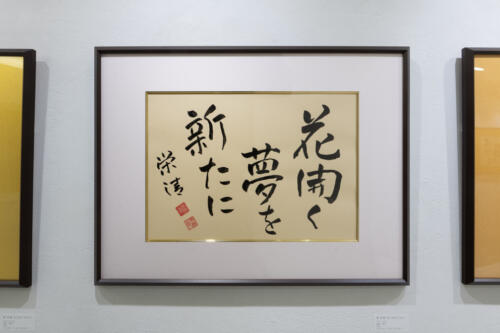 花開く
夢を
新たに
栄清